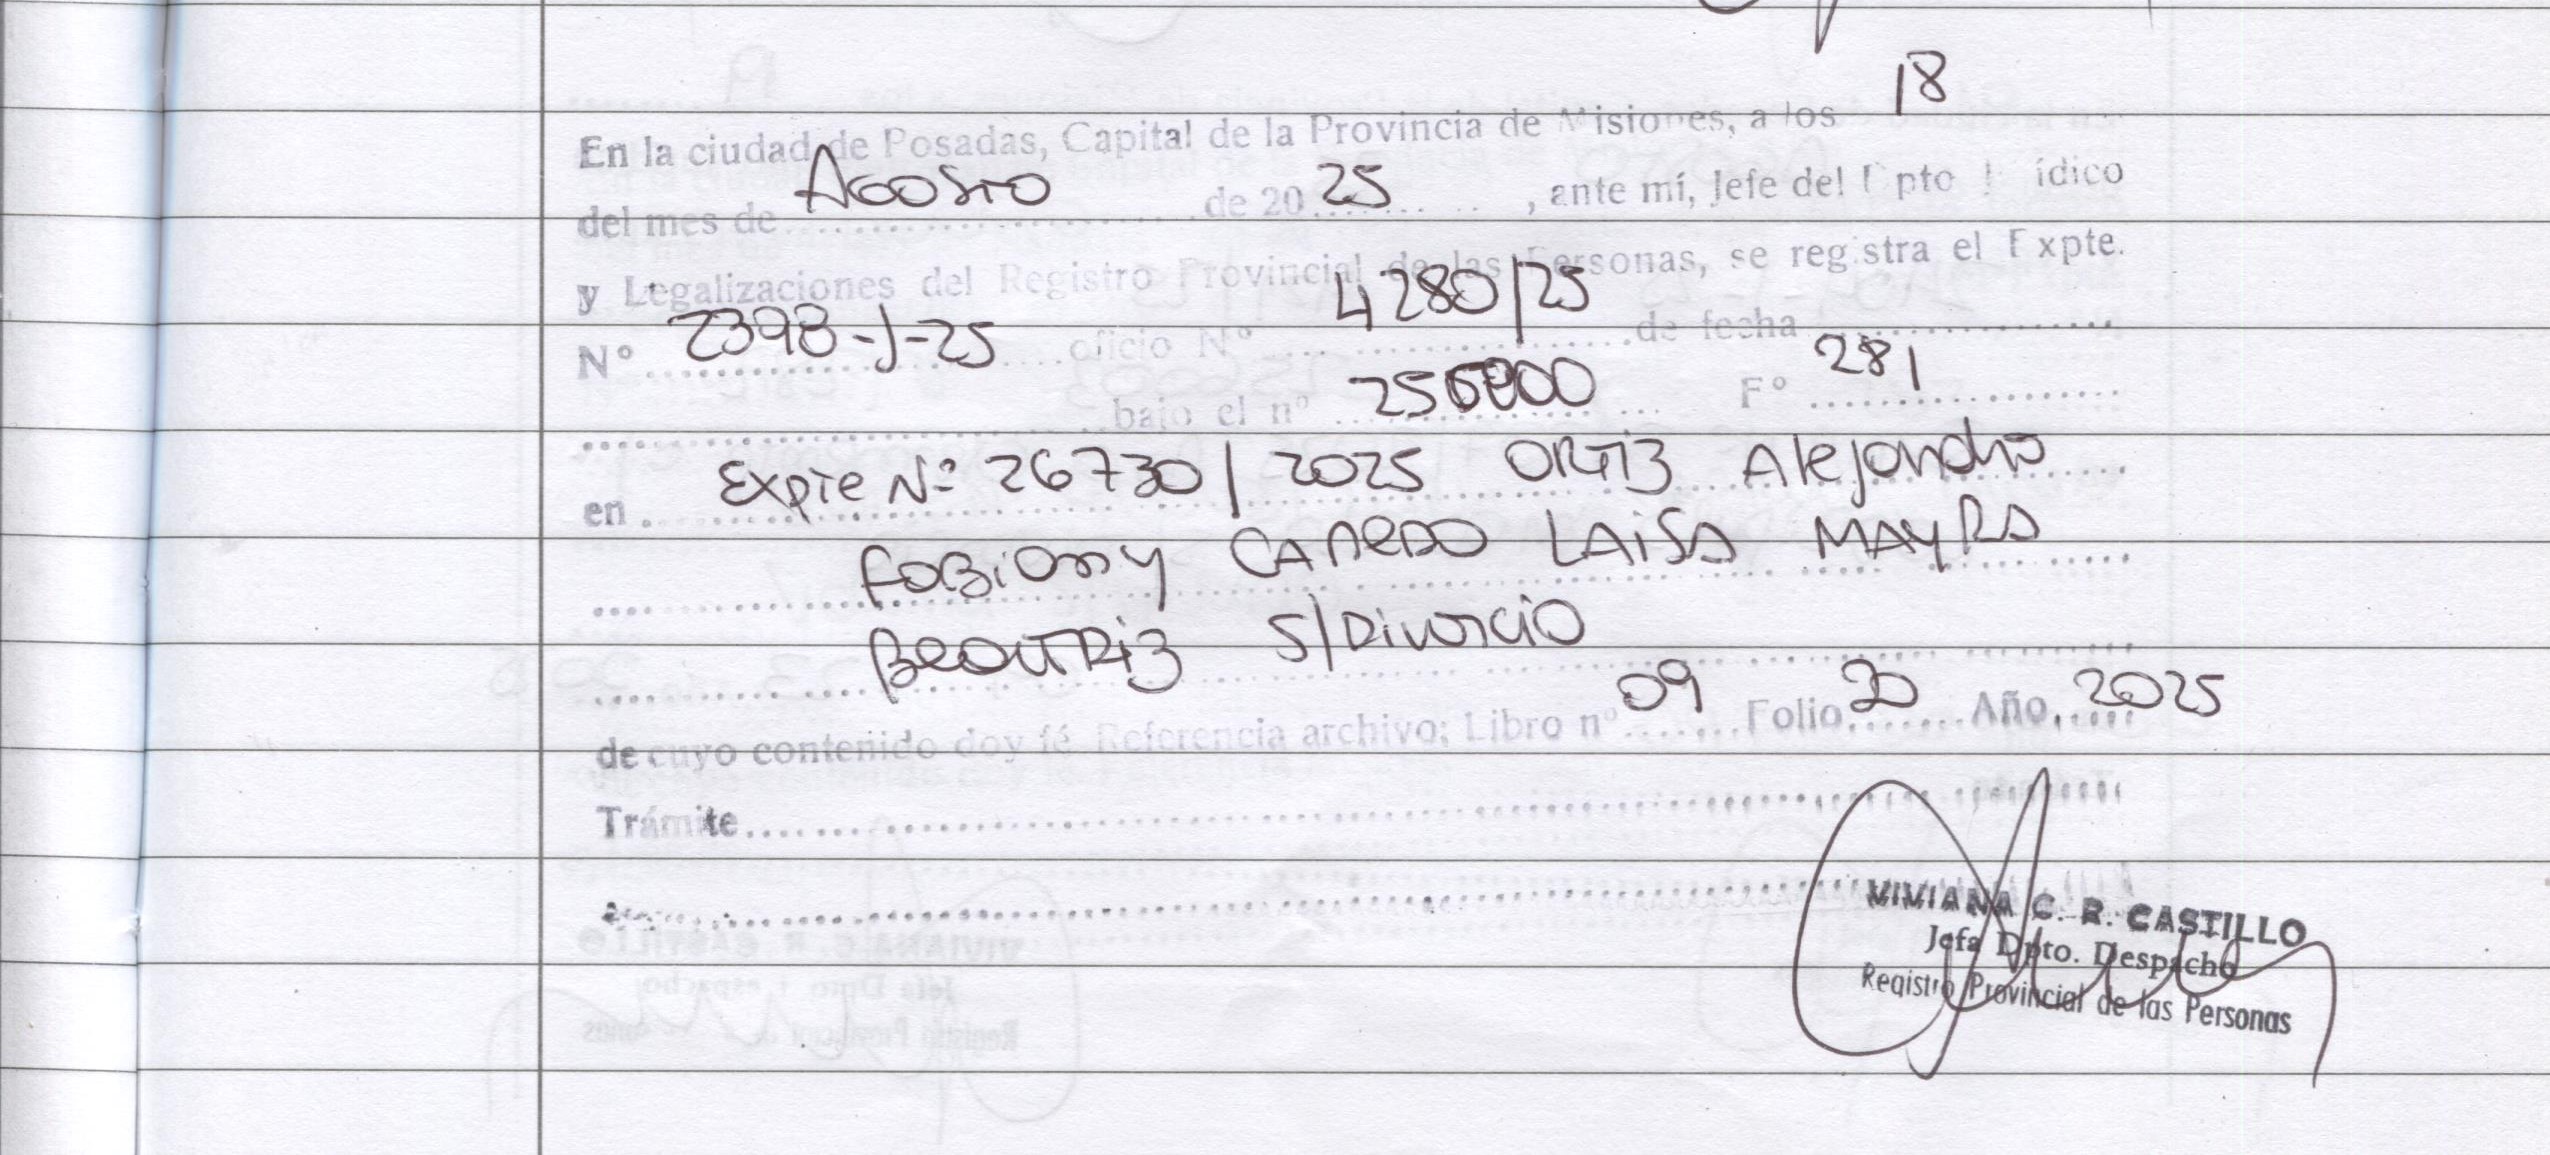 18
En la ciudad de Posadas, Capital de la Provincia de Misiones, a los
del mes de Agosto de 20 25, ante mí, Jefe del Dpto Jurídico
y Legalizaciones del Registro Provincial de las Personas, se registra el Expte.
Nº 2398-J-25 oficio Nº 4280/25 de fecha
bajo el nº Fº 281
en Expte Nº 26730/2025 ORTIZ Alejandro
FABIAN y LAISA MAYRA
BEATRIZ S/Divorcio
de cuyo contenido doy fé Referencia archivo; Libro nº 09 Folio 20 Año 2025
Trámite
VIVIANA C. R. CASTILLO
Jefa Dpto. Despacho
Registro Provincial de las Personas